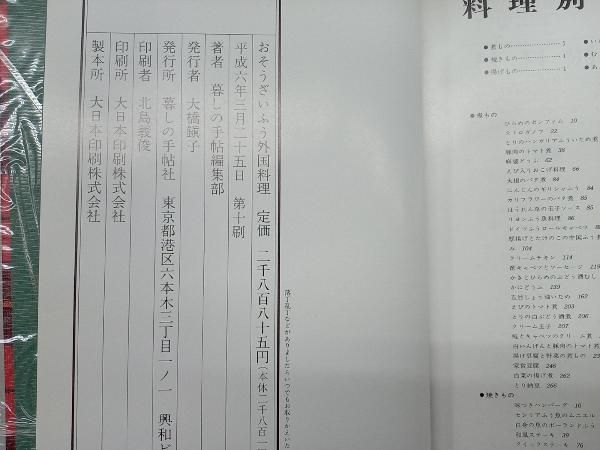 おそうざいふう外国料理　定価　二千八百八十五円(本体二千八百一
平成六年三月二十五日　第十刷
著者　暮しの手帖編集部
発行者　大橋鎭子
発行所　暮しの手帖社　東京都港区六本木三丁目一ノ一　興和ビ
印刷者　北島義俊
印刷所　大日本印刷株式会社
製本所　大日本印刷株式会社
落丁乱丁などがありましたらいつでもお取りかえいた
料理別
●煮もの
●焼きもの
●揚げもの
●煮もの
ひらめのボンファム 19
ストロガノフ 22
とりのハンガリアふういため煮
豚肉のトマト煮 38
麻婆どうふ 62
えび入りおこげ料理 66
大根のバタ煮 84
にんじんのギリシャふう 84
カリフラワーのバタ煮
ほうれん草の玉子ソース 85
リヨンふう魚料理 86
ドイツふうロールキャベツ
厚揚げとたけのこの中国ふう煮
み 104
クリームチキン 114
酢キャベツとソーセージ
かきとひらめのぶどう酒むし
かにどうふ 139
五目しょう油いため 162
えびのトマト煮 203
とりの白ぶどう酒煮 206
クリーム玉子 207
鮭とキャベツのクリーム煮
白いんげんと豚肉のトマト煮
揚げ豆腐と野菜の煮もの
家常豆腐 246
白菜の揚げ煮 262
とり納豆 266
●焼きもの
味つきハンバーグ 16
センリアふう魚のムニエル
白身の魚のポーランドふう
和風ステーキ 39
クイックステーキ 76